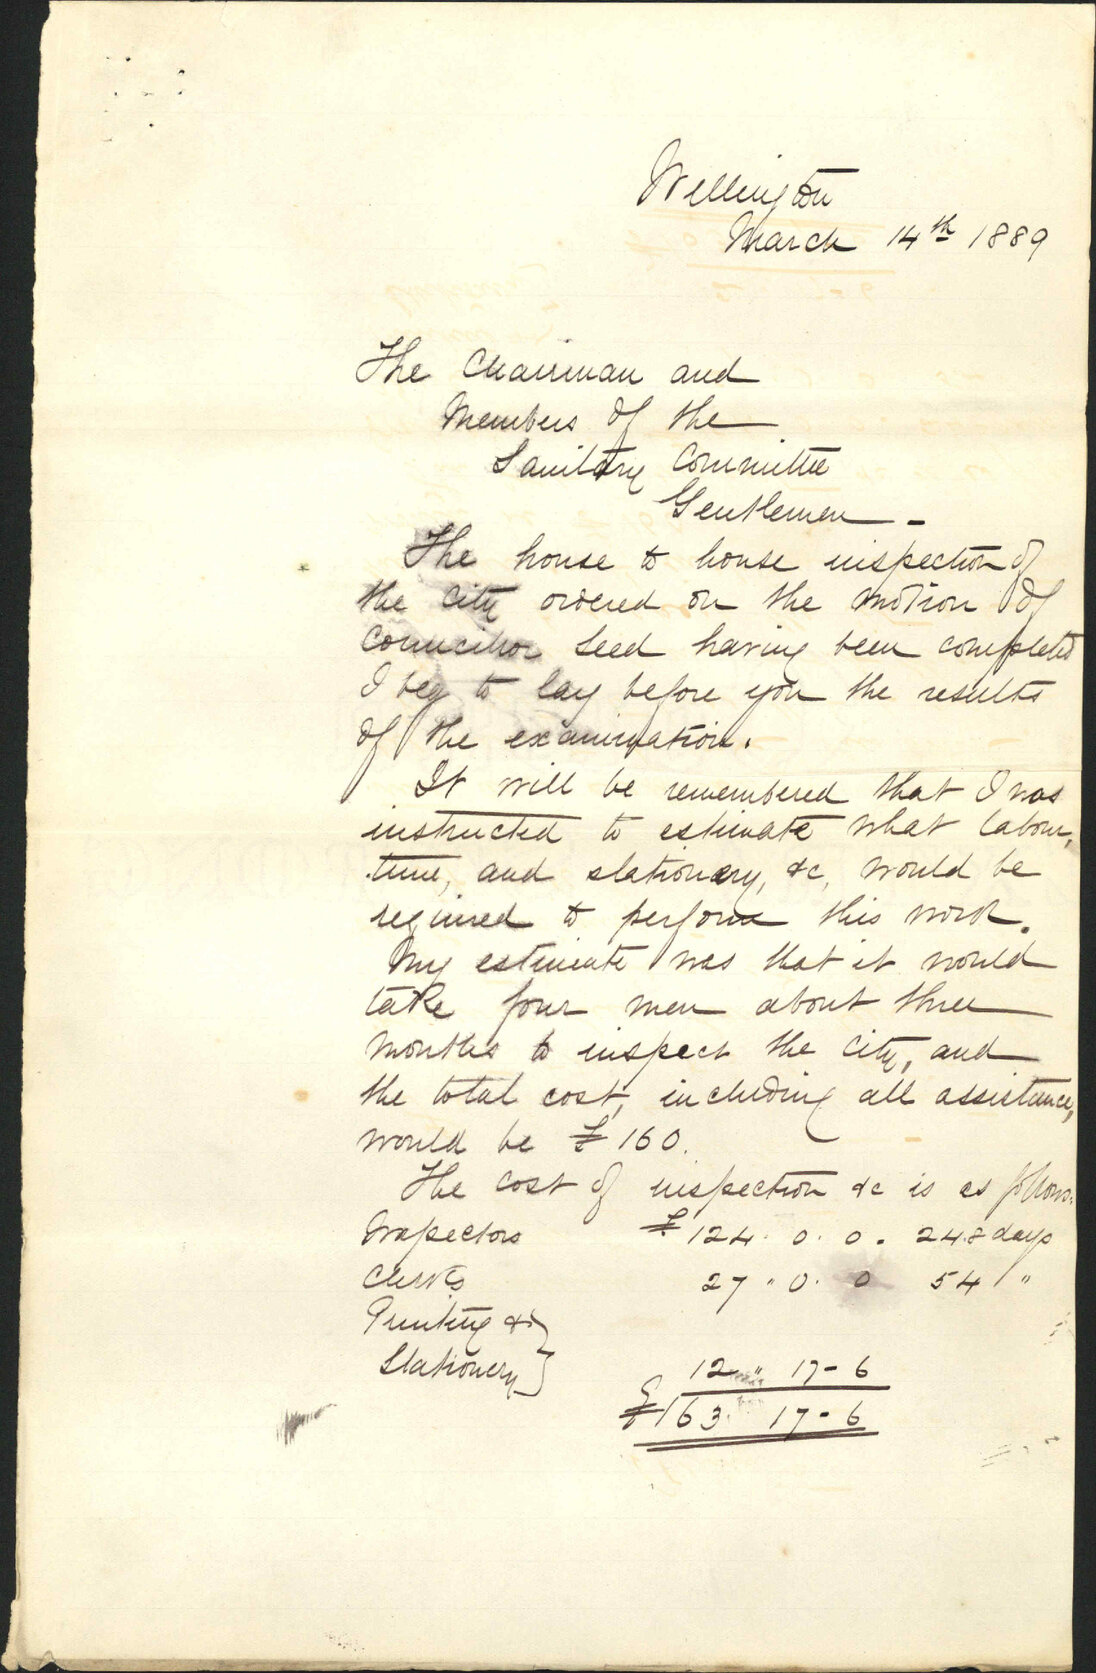 Wellington
March 14th 1889
The Chairman and
Members of the
Sanitary Committee
Gentlemen -
The house to house inspection of
the City ordered on the motion of
Councillor Seed having been completed
I beg to lay before you the results
of the examination.
It will be remembered that I was
instructed to estimate what labour,
time, and stationery, &c, would be
required to perform this work.
My estimate was that it would
take four men about three
months to inspect the City, and
the total cost, including all assistance,
would be £160.
The cost of inspection &c is as follows.
Inspectors £124. 0. 0. 248 days
Clerks 27 " 0. 0 54 "
Printing &
Stationery } 12 " 17-6
£163. 17-6